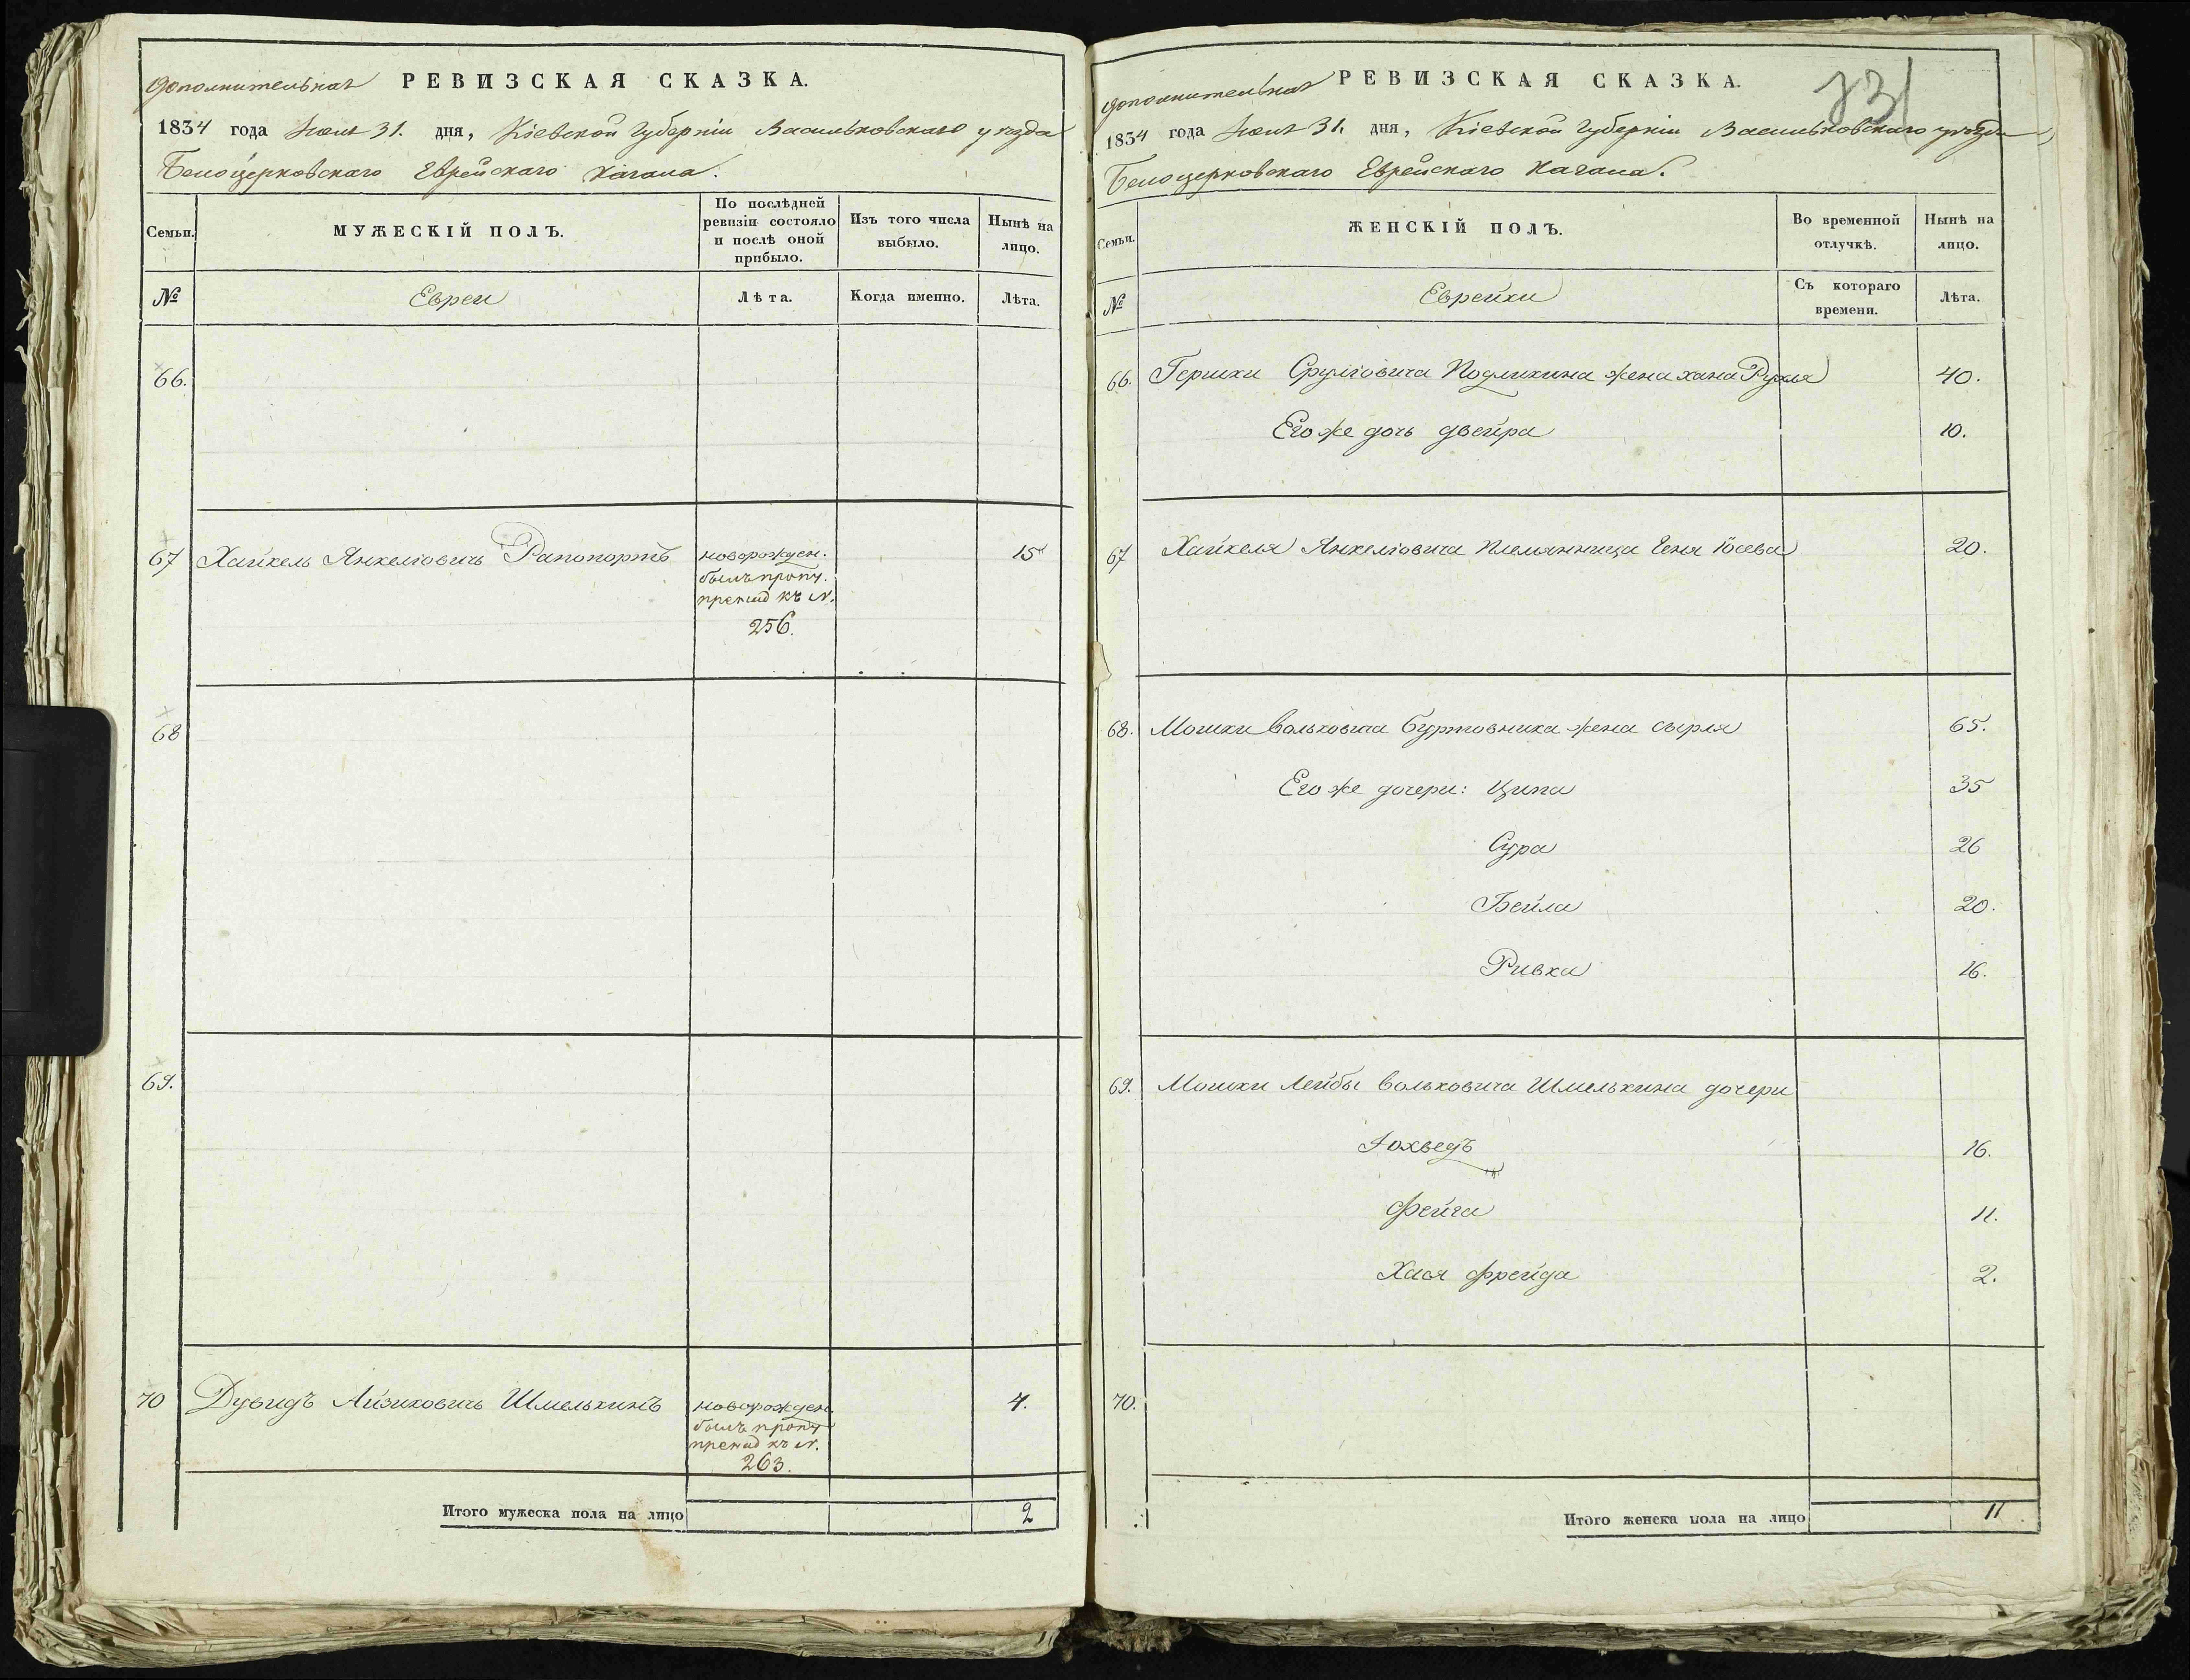 Дополнительная РЕВИЗСКАЯ СКАЗКА.
1834 года Июля 31. дня, Кіевской Губерніи Васильковскаго уѣзда
Белоцерковскаго Еврейскаго Кагала.
Семьи.
МУЖЕСКІЙ ПОЛЪ.
По послѣдней
ревизіи состояло
и послѣ оной
прибыло.
Изъ того числа
выбыло.
Нынѣ на
лицо.
№
Евреи
Лѣта.
Когда именно.
Лѣта.
66.
67 Хайкель Янкеліовичь Рапопортъ новорожден. 15
былъ пропу.
къ N.
256.
68
69.
70 Дувидъ Айзиковичь Шмелькинъ новорожден. 4.
былъ пропу
къ N.
263.
Итого мужеска пола на лицо 2
731
Дополнительная РЕВИЗСКАЯ СКАЗКА.
1834 года Июля 31. дня, Кіевской Губерніи Васильковскаго уѣзда,
Белоцерковскаго Еврейскаго Кагала.
Семьи.
ЖЕНСКІЙ ПОЛЪ.
Во временной
отлучкѣ.
Нынѣ на
лицо.
№
Еврейки
Съ котораго
времени.
Лѣта.
66. Гершки Сруліовича жена хана Рухля 40.
Его же дочь двейра 10.
67 Хайкеля Янкеліовича племянница Геня Іосева 20.
68. Мошки вольковича Буртовника жена сырля 65.
Его же дочери: Ципа 35
Сура 26
Бейла 20.
Ривка 16.
69. Мошки Лейбы вольковича Шмелькина дочери
Іохведъ 16.
Фейга 11.
Хася фрейда 2.
70.
Итого женска пола на лицо 11